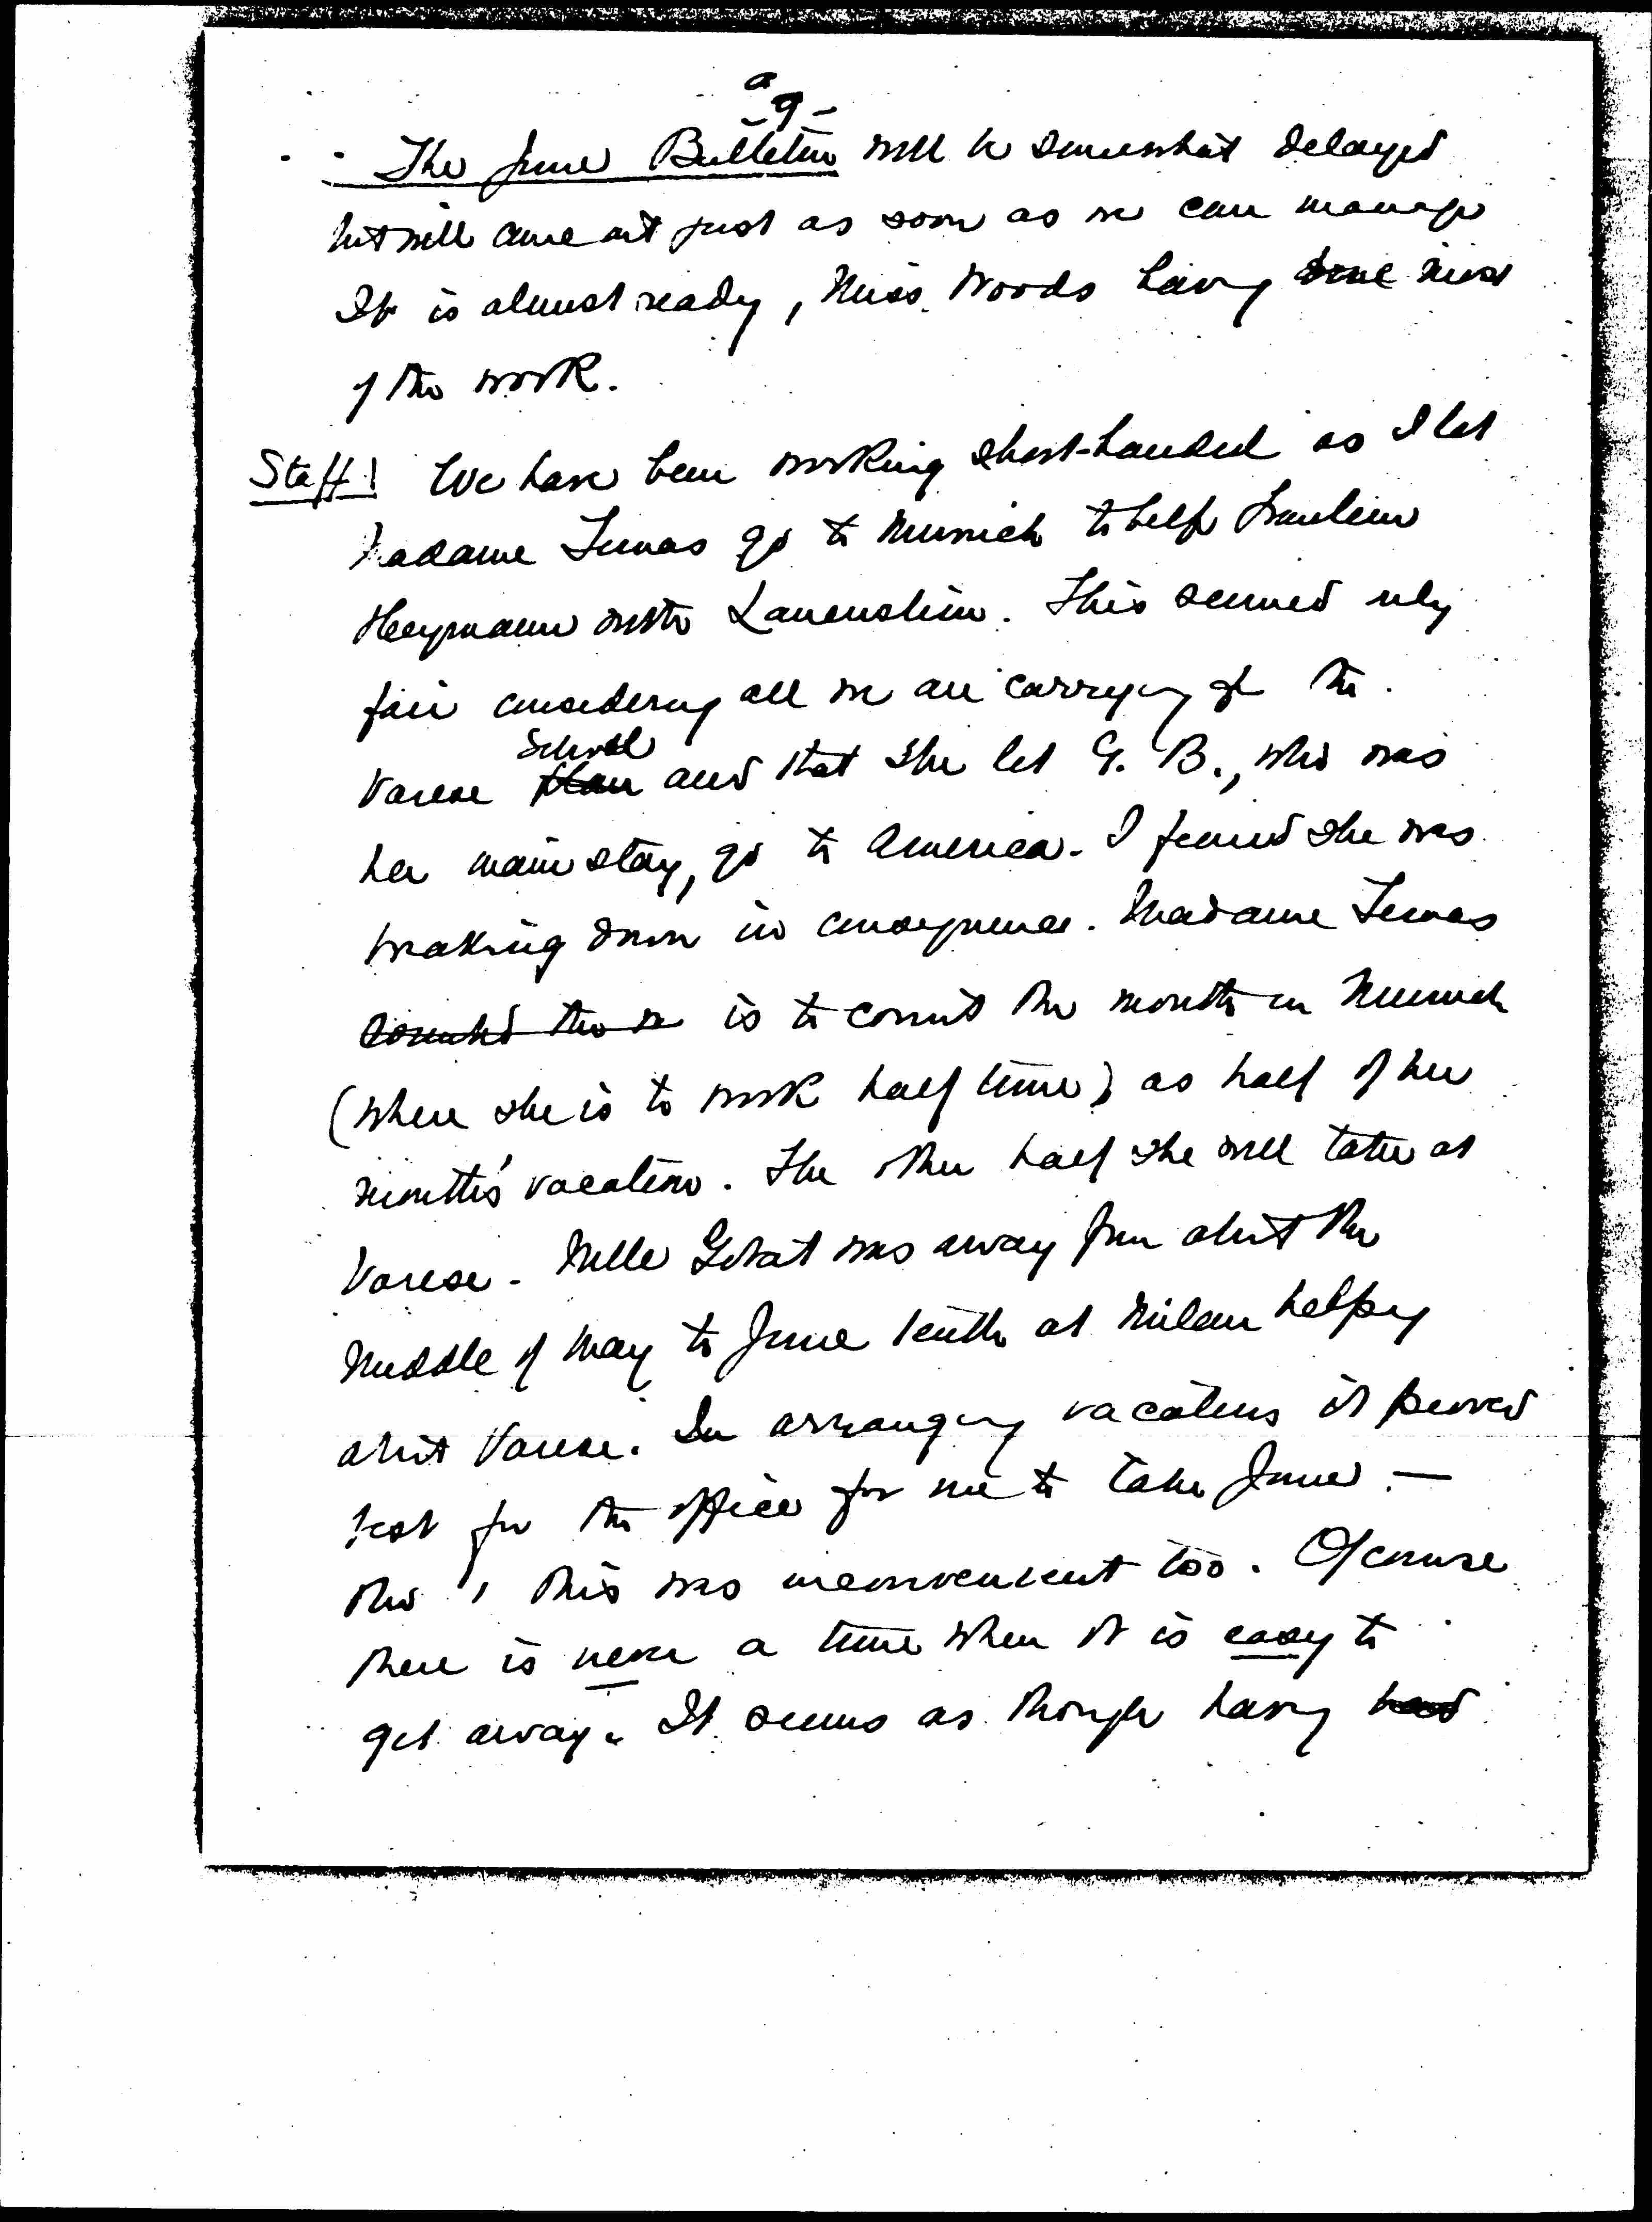 a
- 9 -
The June Bulletin will be somewhat delayed
but will come out just as soon as we can manage
It is almost ready, Miss Woods having done most
of the work.
Staff! We have been working short-handed as I let
Madame Tunas go to Munich to help Fraulein
Heymann with Lauenstein. This seemed only
fair considering all we are carrying of the
School
Varese plan and that she let G. B., who was
her main stay, go to America. I found she was
breaking down in consequence. Madame Tunas
counted the m is to count the month in Munich
(where she is to work half time) as half of her
month's vacation. The other half she will take at
Varese. Mlle Gobat was away from about the
Middle of May to June tenth at Milan helping
about Varese. In arranging vacations it proved
best for the office for me to take June. —
tho' this was inconvenient too. Of course
there is never a time when it is easy to
get away. It seems as though having had